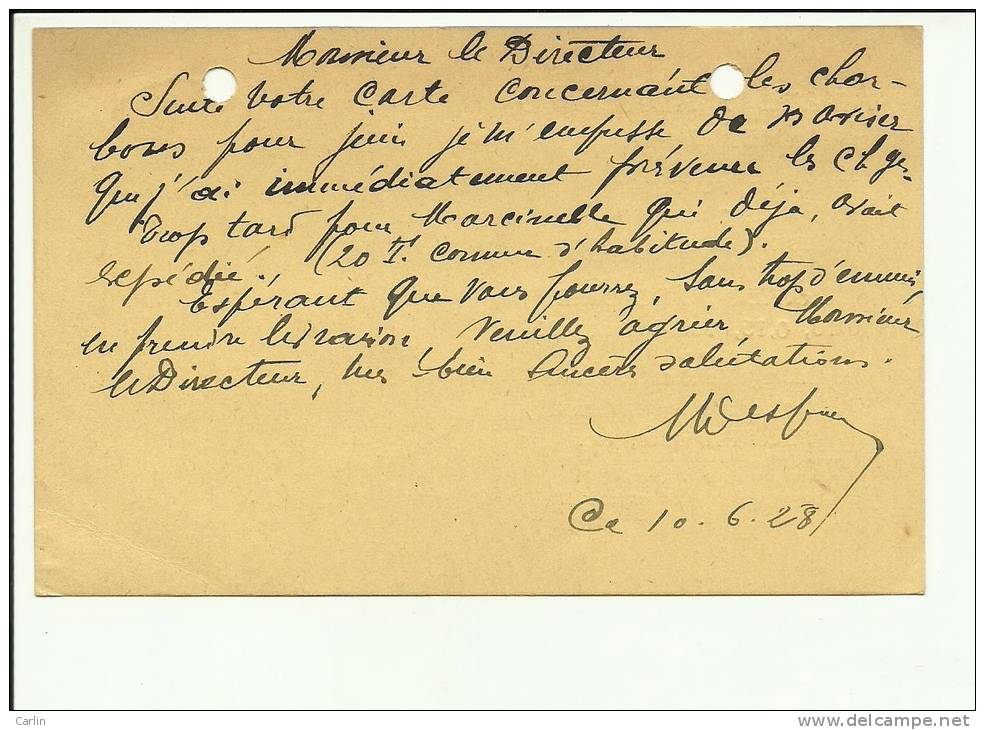 Monsieur le Directeur
Suite votre carte concernant les char-
bons pour juin je m'empresse de vs aviser
que j'ai immédiatement prévenu les Chges.
Trop tard pour Marcinelle qui déjà, avait
expédié., (20 T. comme d'habitude).
Espérant que vous pourrez, sans trop d'ennui,
en prendre livraison, Veuillez agréer Monsieur
le Directeur, mes bien sincères salutations.
Ce 10.6.28
Carlin
www.delcampe.net